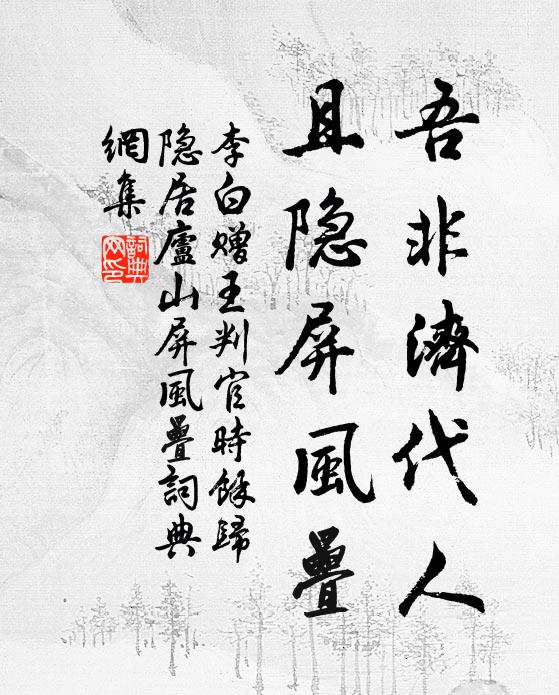 吾非濟代人
且隐屏風疊
李白赠王判官時餘歸
隐居廬山屏風疊詞典
網集
詞典
网印